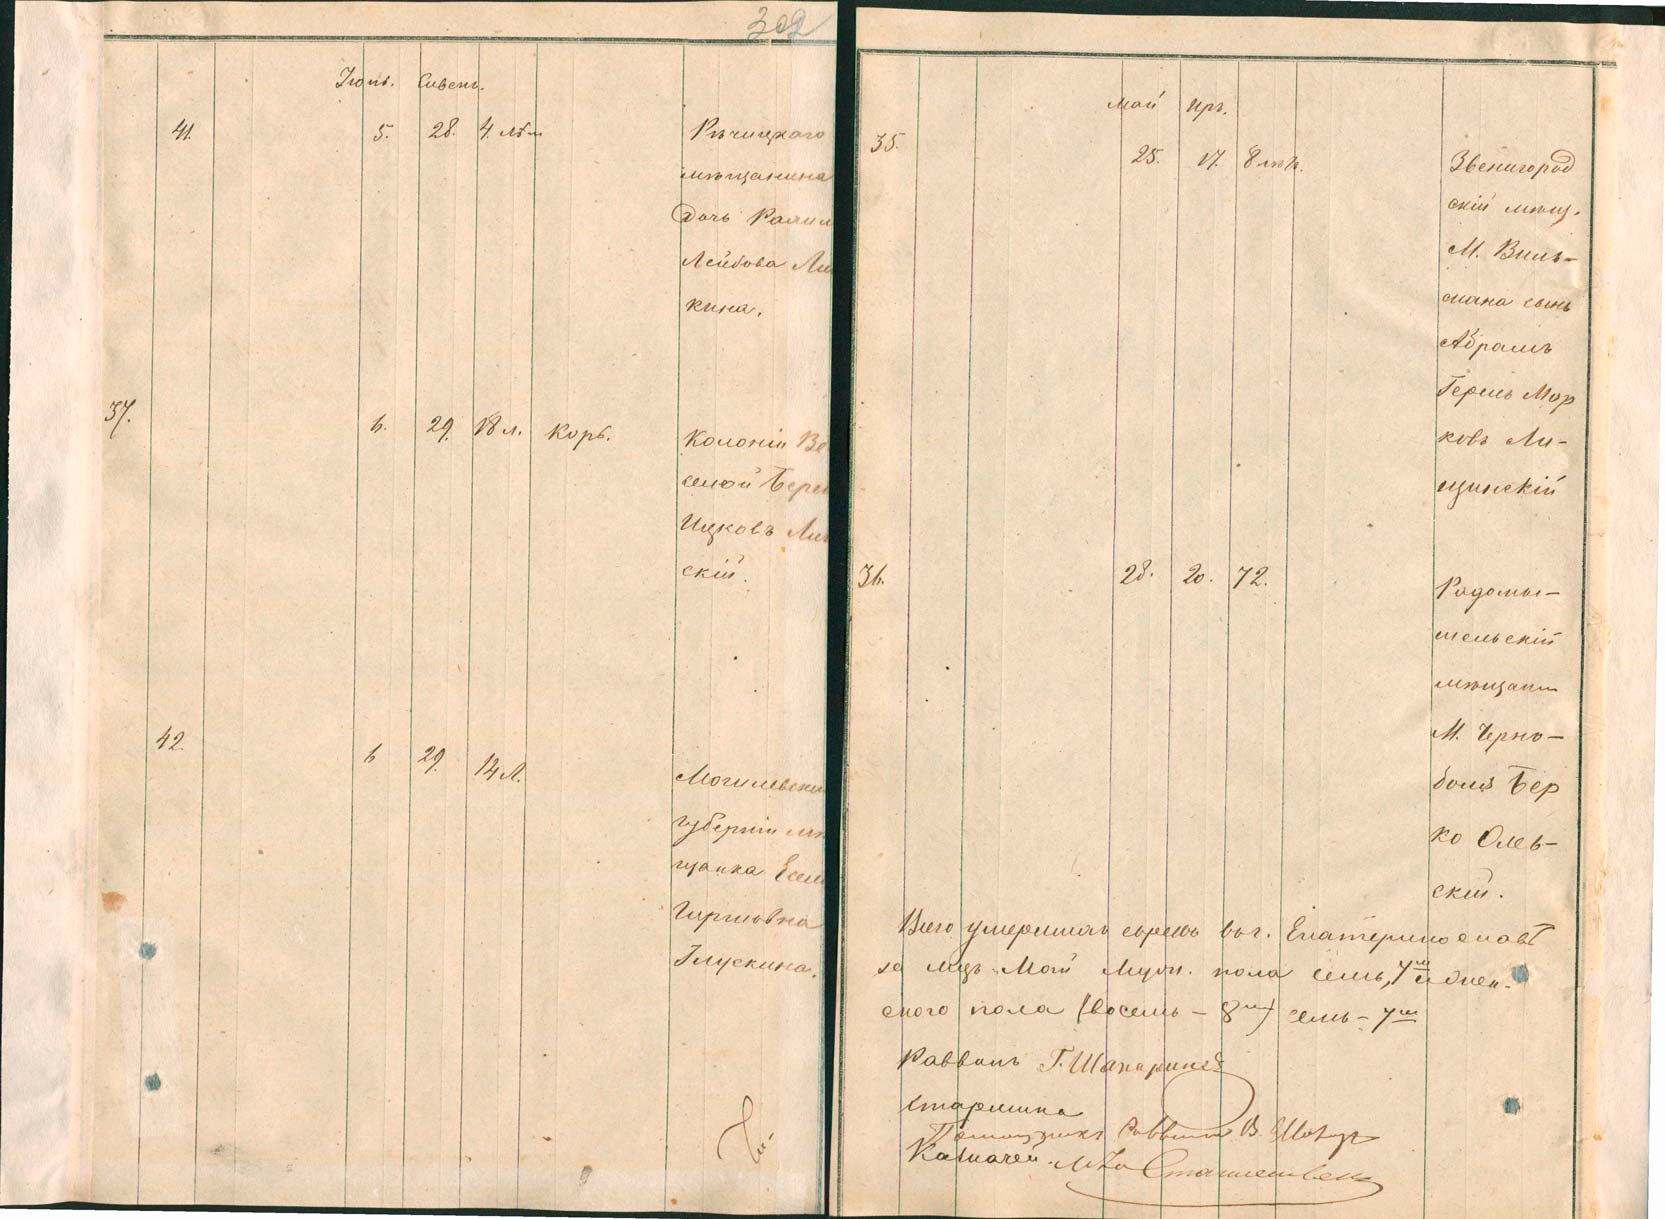 302
Іюнь. Сивень.
41. 5. 28. 4. лѣт
Рѣчицкаго
мѣщанина
дочь
Лейбова
кина.
37. 6. 29. 18 л. Корь.
Колоніи Ве
селой Берк
Ицковъ
скій.
42. 6 29. 14 л.
Могилевской
губерніи мѣ
щанка
Гиршовна
Глускина.
Май Иръ.
35. 25. 17. 8 лѣтъ.
Звенигород
скій мѣщ.
М. Виль-
шана сынъ
Абрамъ
Герль Мор
ковъ Ли-
щинскій
36. 28. 20. 72.
Радомы-
шельскій
мѣщанин
М. Черно-
былъ Бер
ко Олев-
скій.
Всего умершихъ евреевъ въ г. Екатеринославѣ
за мцъ Май Мужч. пола семь, 7мь и жен-
скаго пола (восемь - 8мь) семь - 7мь
Раввинъ Г. Шахаринсъ
Старшина
Помощникъ Раввина В.
Казначей